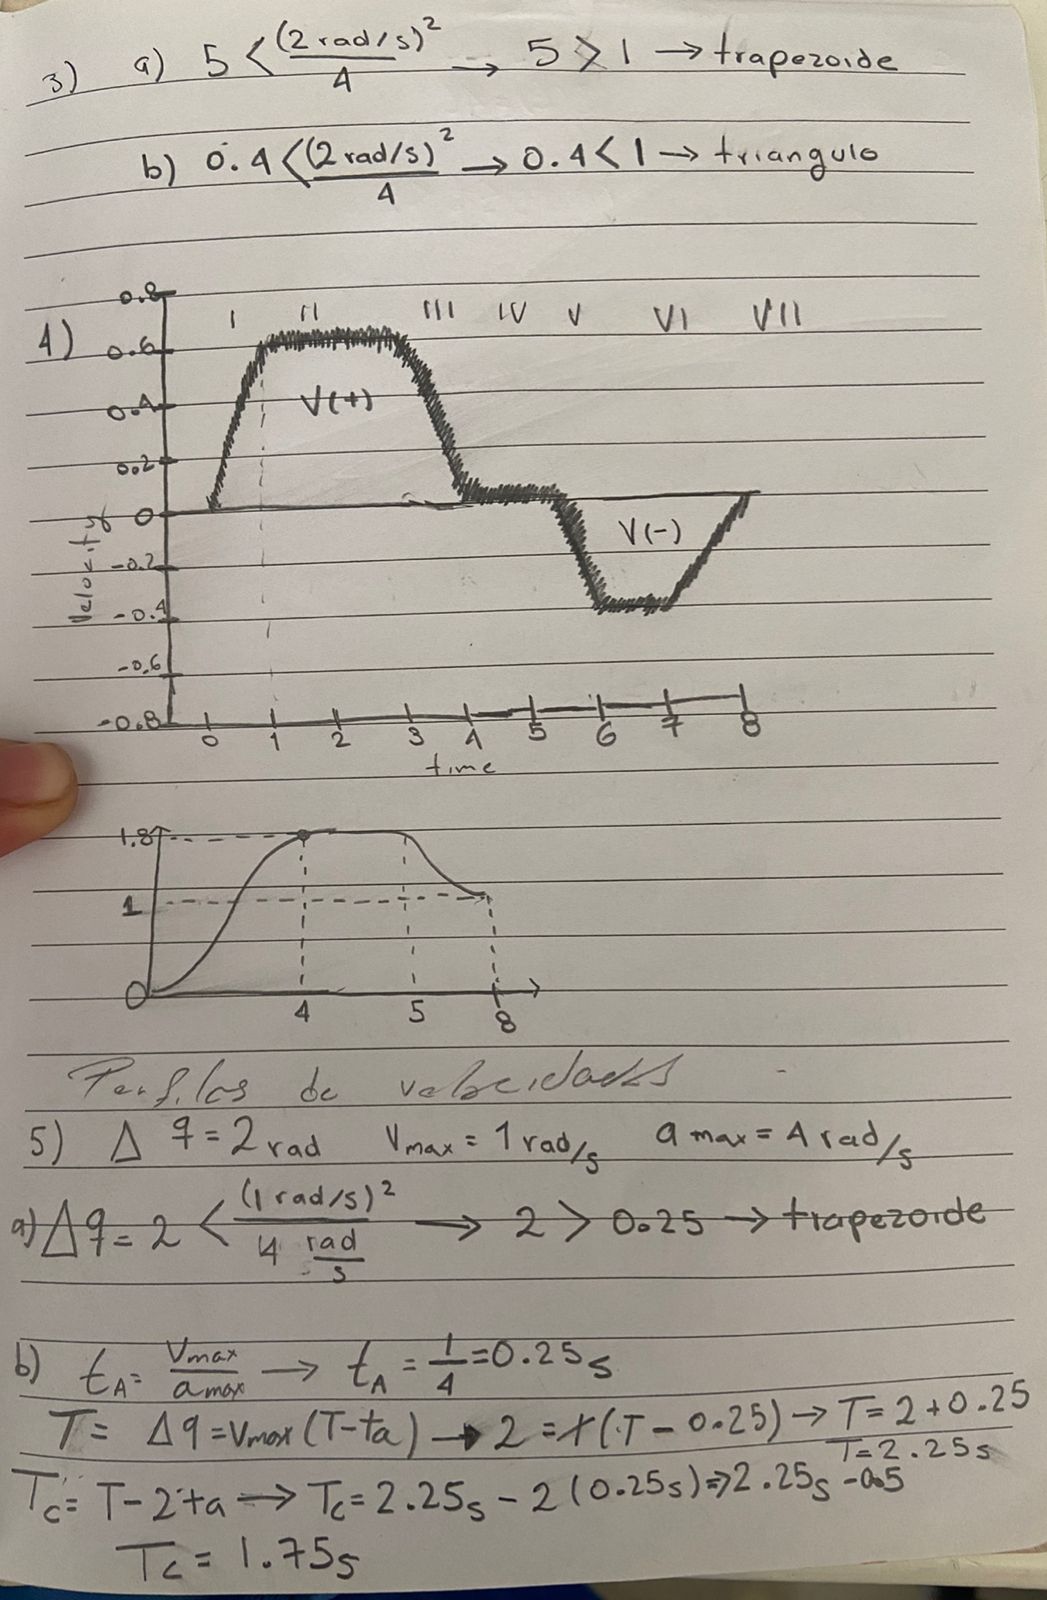 3) a) 5 < (2 rad/s)² / 4 → 5 > 1 → trapezoide
b) 0.4 < (2 rad/s)² / 4 → 0.4 < 1 → triangulo
4)
I II III IV V VI VII
0.8
0.6
0.4
0.2
0
-0.2
-0.4
-0.6
-0.8
Velocity
V(+)
V(-)
0 1 2 3 4 5 6 7 8
time
1.8
1
0
4 5 8
Perfiles de velocidades
5) Δ q = 2 rad Vmax = 1 rad/s a max = 4 rad/s
a) Δq = 2 < (1 rad/s)² / 4 rad/s → 2 > 0.25 → trapezoide
b) tA = Vmax / amax → tA = 1/4 = 0.25 s
T = Δq = Vmax (T - ta) → 2 = 1 (T - 0.25) → T = 2 + 0.25
T = 2.25 s
Tc = T - 2ta → Tc = 2.25s - 2 (0.25s) ⇒ 2.25s - 0.5
Tc = 1.75s